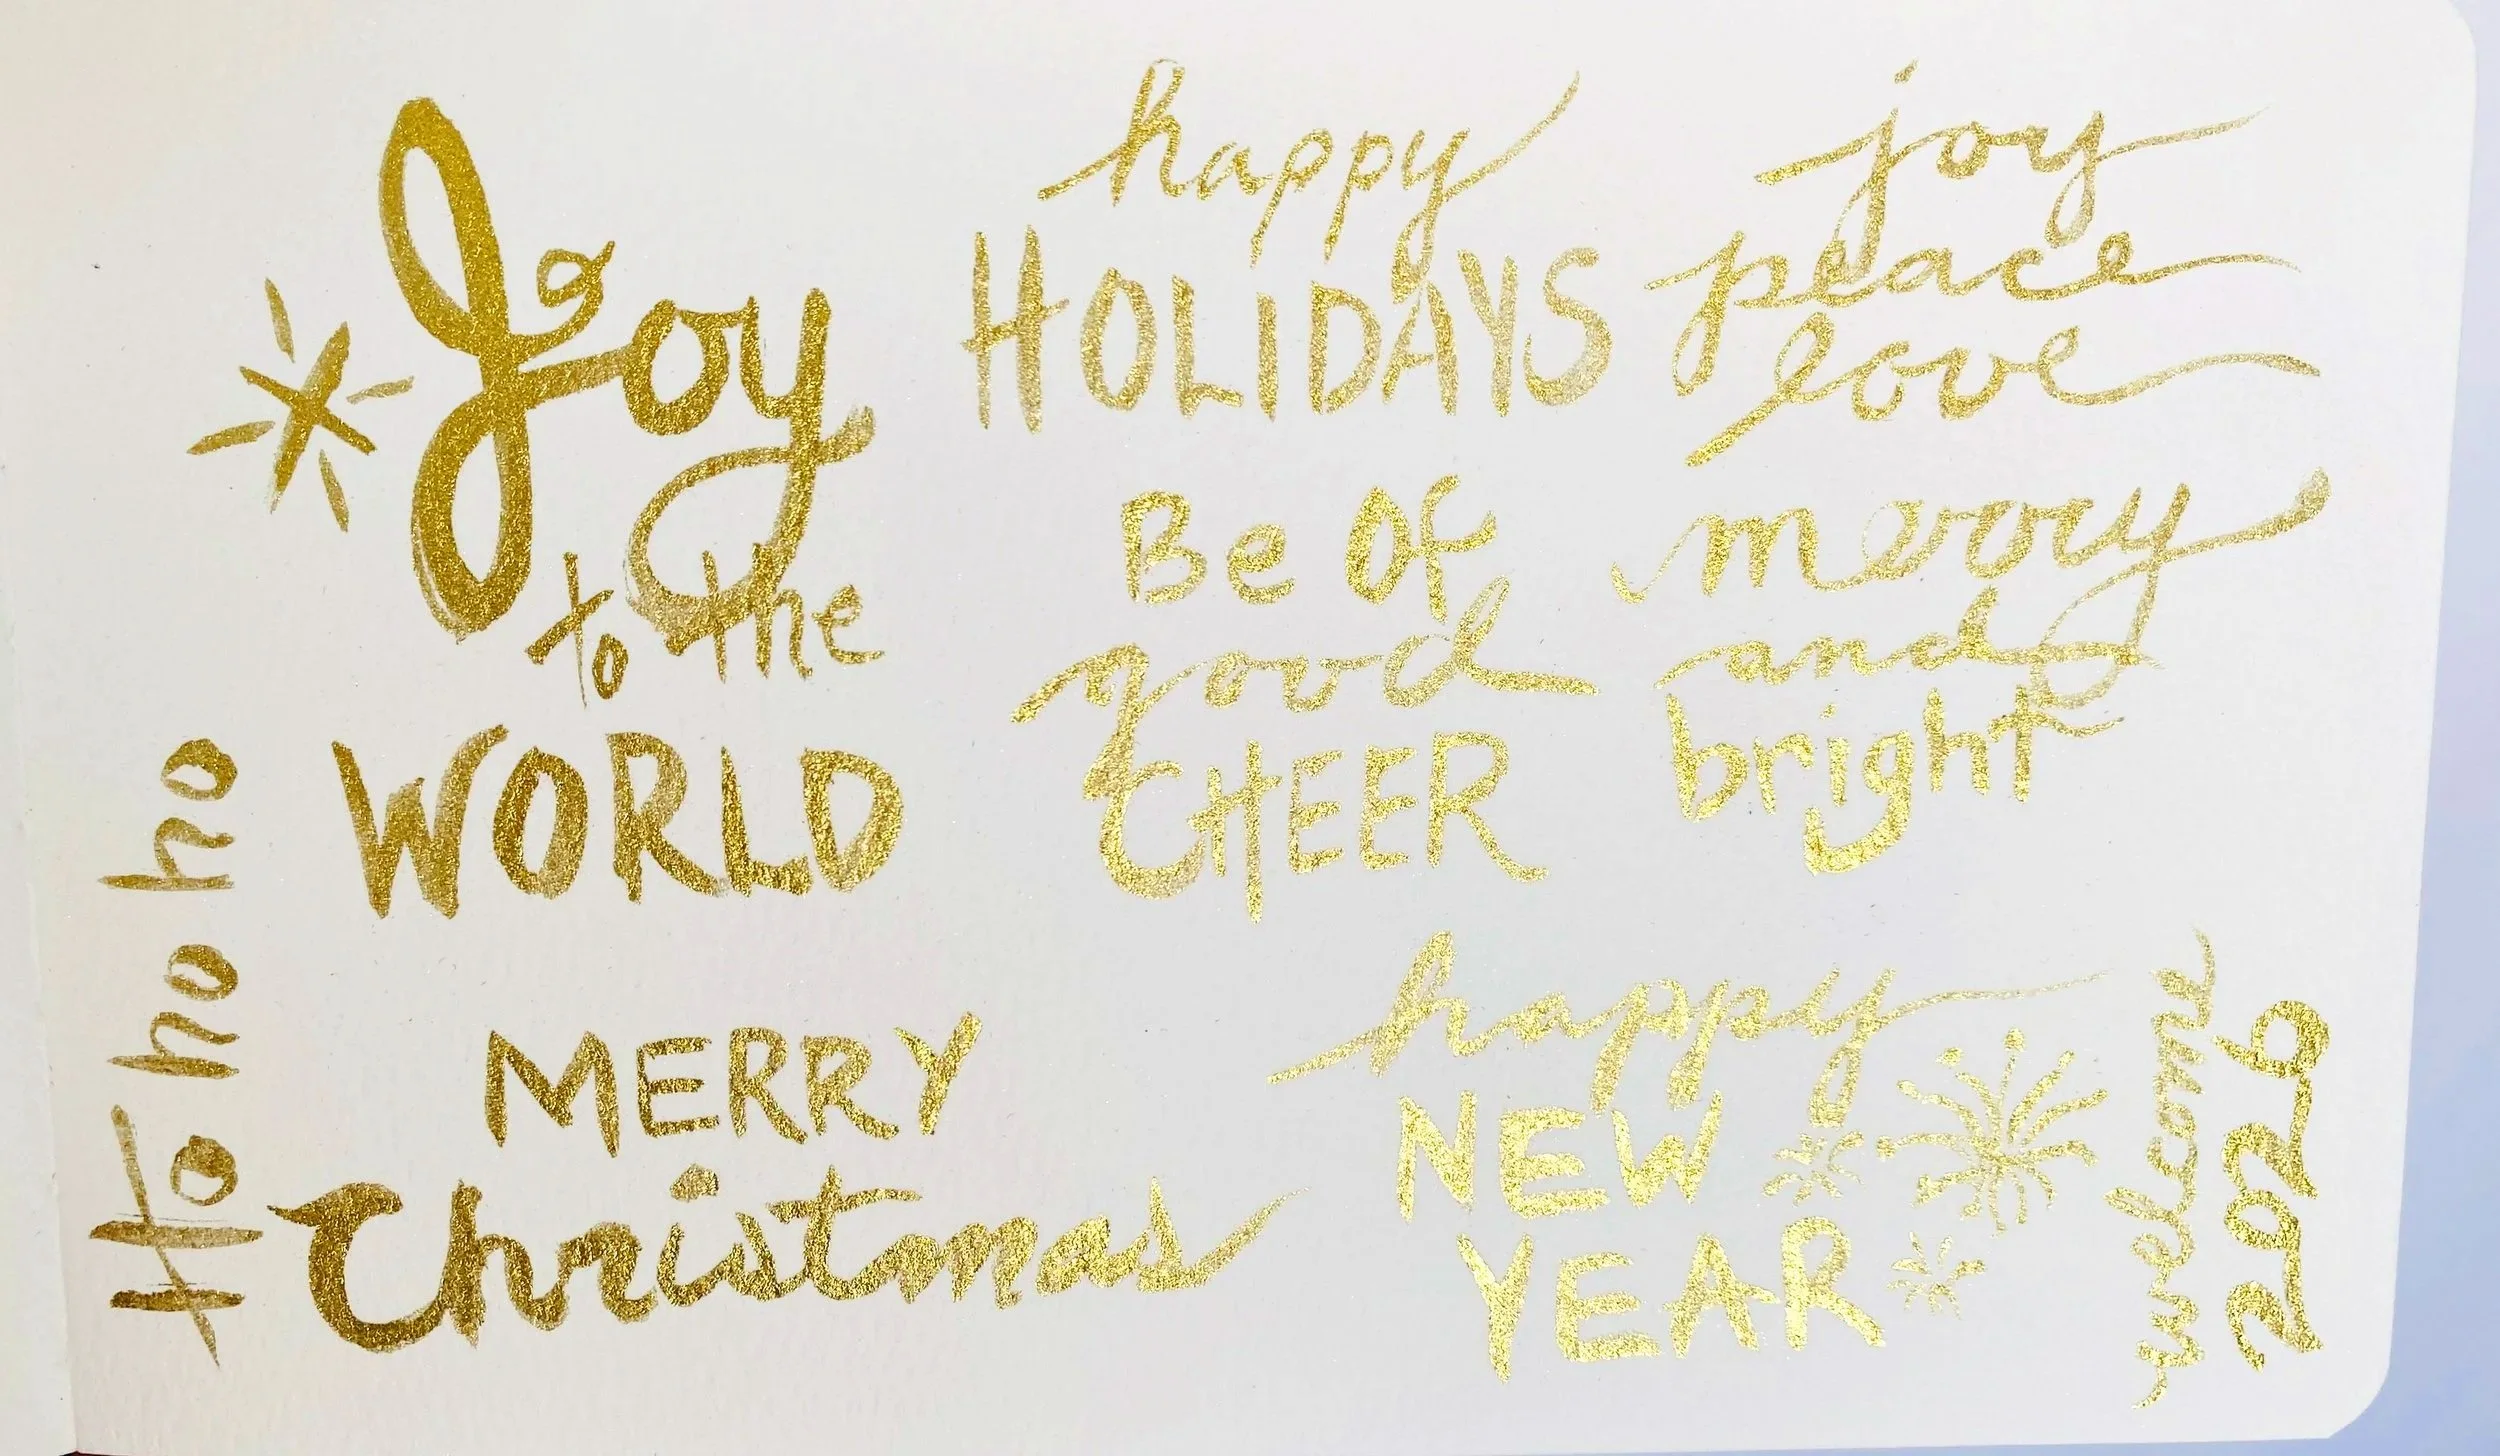 Joy
to the
WORLD
Ho ho ho
MERRY
Christmas
happy
HOLIDAYS
Be Of
good
CHEER
joy
peace
love
merry
and
bright
happy
NEW
YEAR
welcome
2026